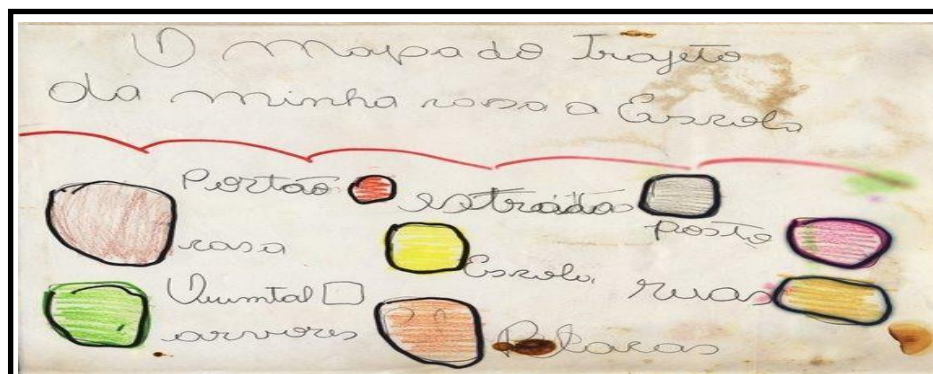 O mapa do Trajeto
da minha casa a Escola
Portão estradas
posto
casa
Escola ruas
Quintal
arvores Placas